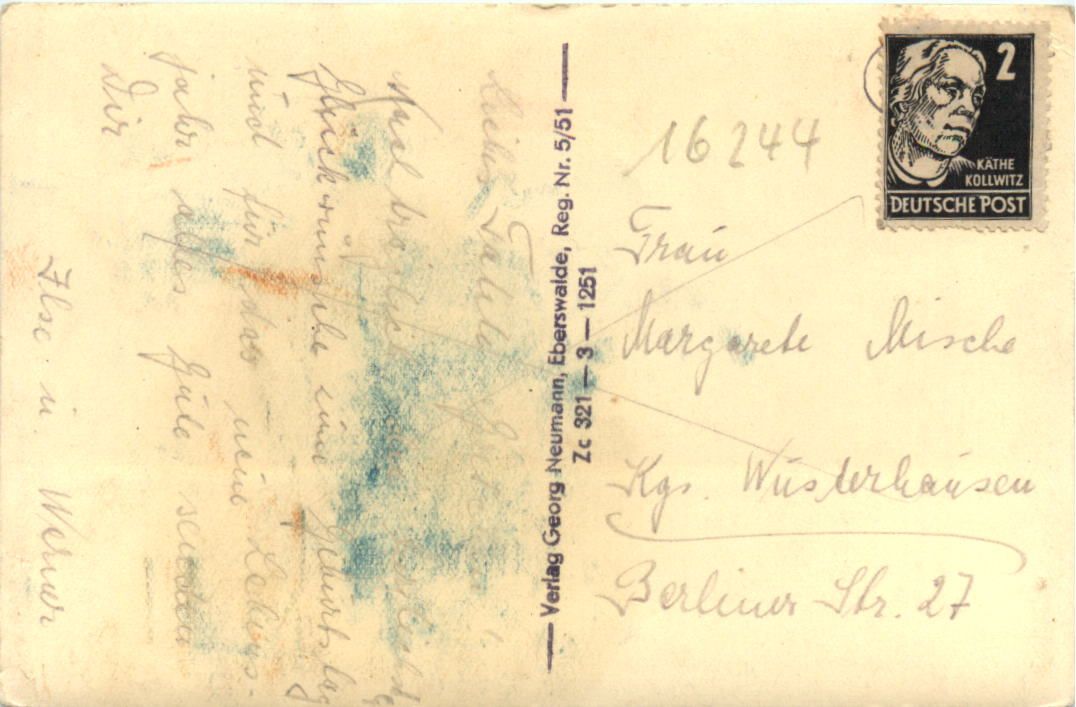 Tante
Nachträglich
Glückwünsche zum Geburtstag
und für das neue Lebens-
jahr alles Gute senden
Dir
Ilse u. Werner
Verlag Georg Neumann, Eberswalde, Reg. Nr. 5/51
Zc 321 — 3 — 1251
2
KÄTHE
KOLLWITZ
DEUTSCHE POST
16244
Frau
Margarete Mische
Kgs. Wusterhausen
Berliner Str. 27